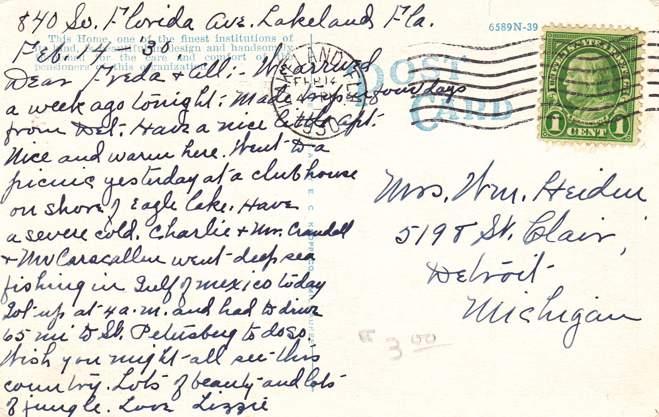 840 So. Florida Ave. Lakeland Fla.
Feb. 4 - '30.
Dear Freda & all:- We arrived
a week ago tonight: Made trip in four days
from Det. Have a nice little apt.
Nice and warm here. Went to a
picnic yesterday at a club house
on shore of Eagle Lake. Have
a severe cold. Charlie & Mr. Crandall
& Mr Caragallen went deep sea
fishing in Gulf of Mexico today
Got up at 4 a.m. and had to drive
65 mi to St. Petersberg to do so.
Wish you might all see this
country. Lots of beauty and lots
of jungle. Love Lizzie
This Home, one of the finest institutions of
its kind, is beautiful in design and handsomely
for the care and comfort of
pensioners of this organization
6589N-39
POST
CARD
LAKELAND
FEB
1930
FLA.
1 CENT 1
Mrs. Wm. Heiden
5198 St. Clair,
Detroit
Michigan
3 00